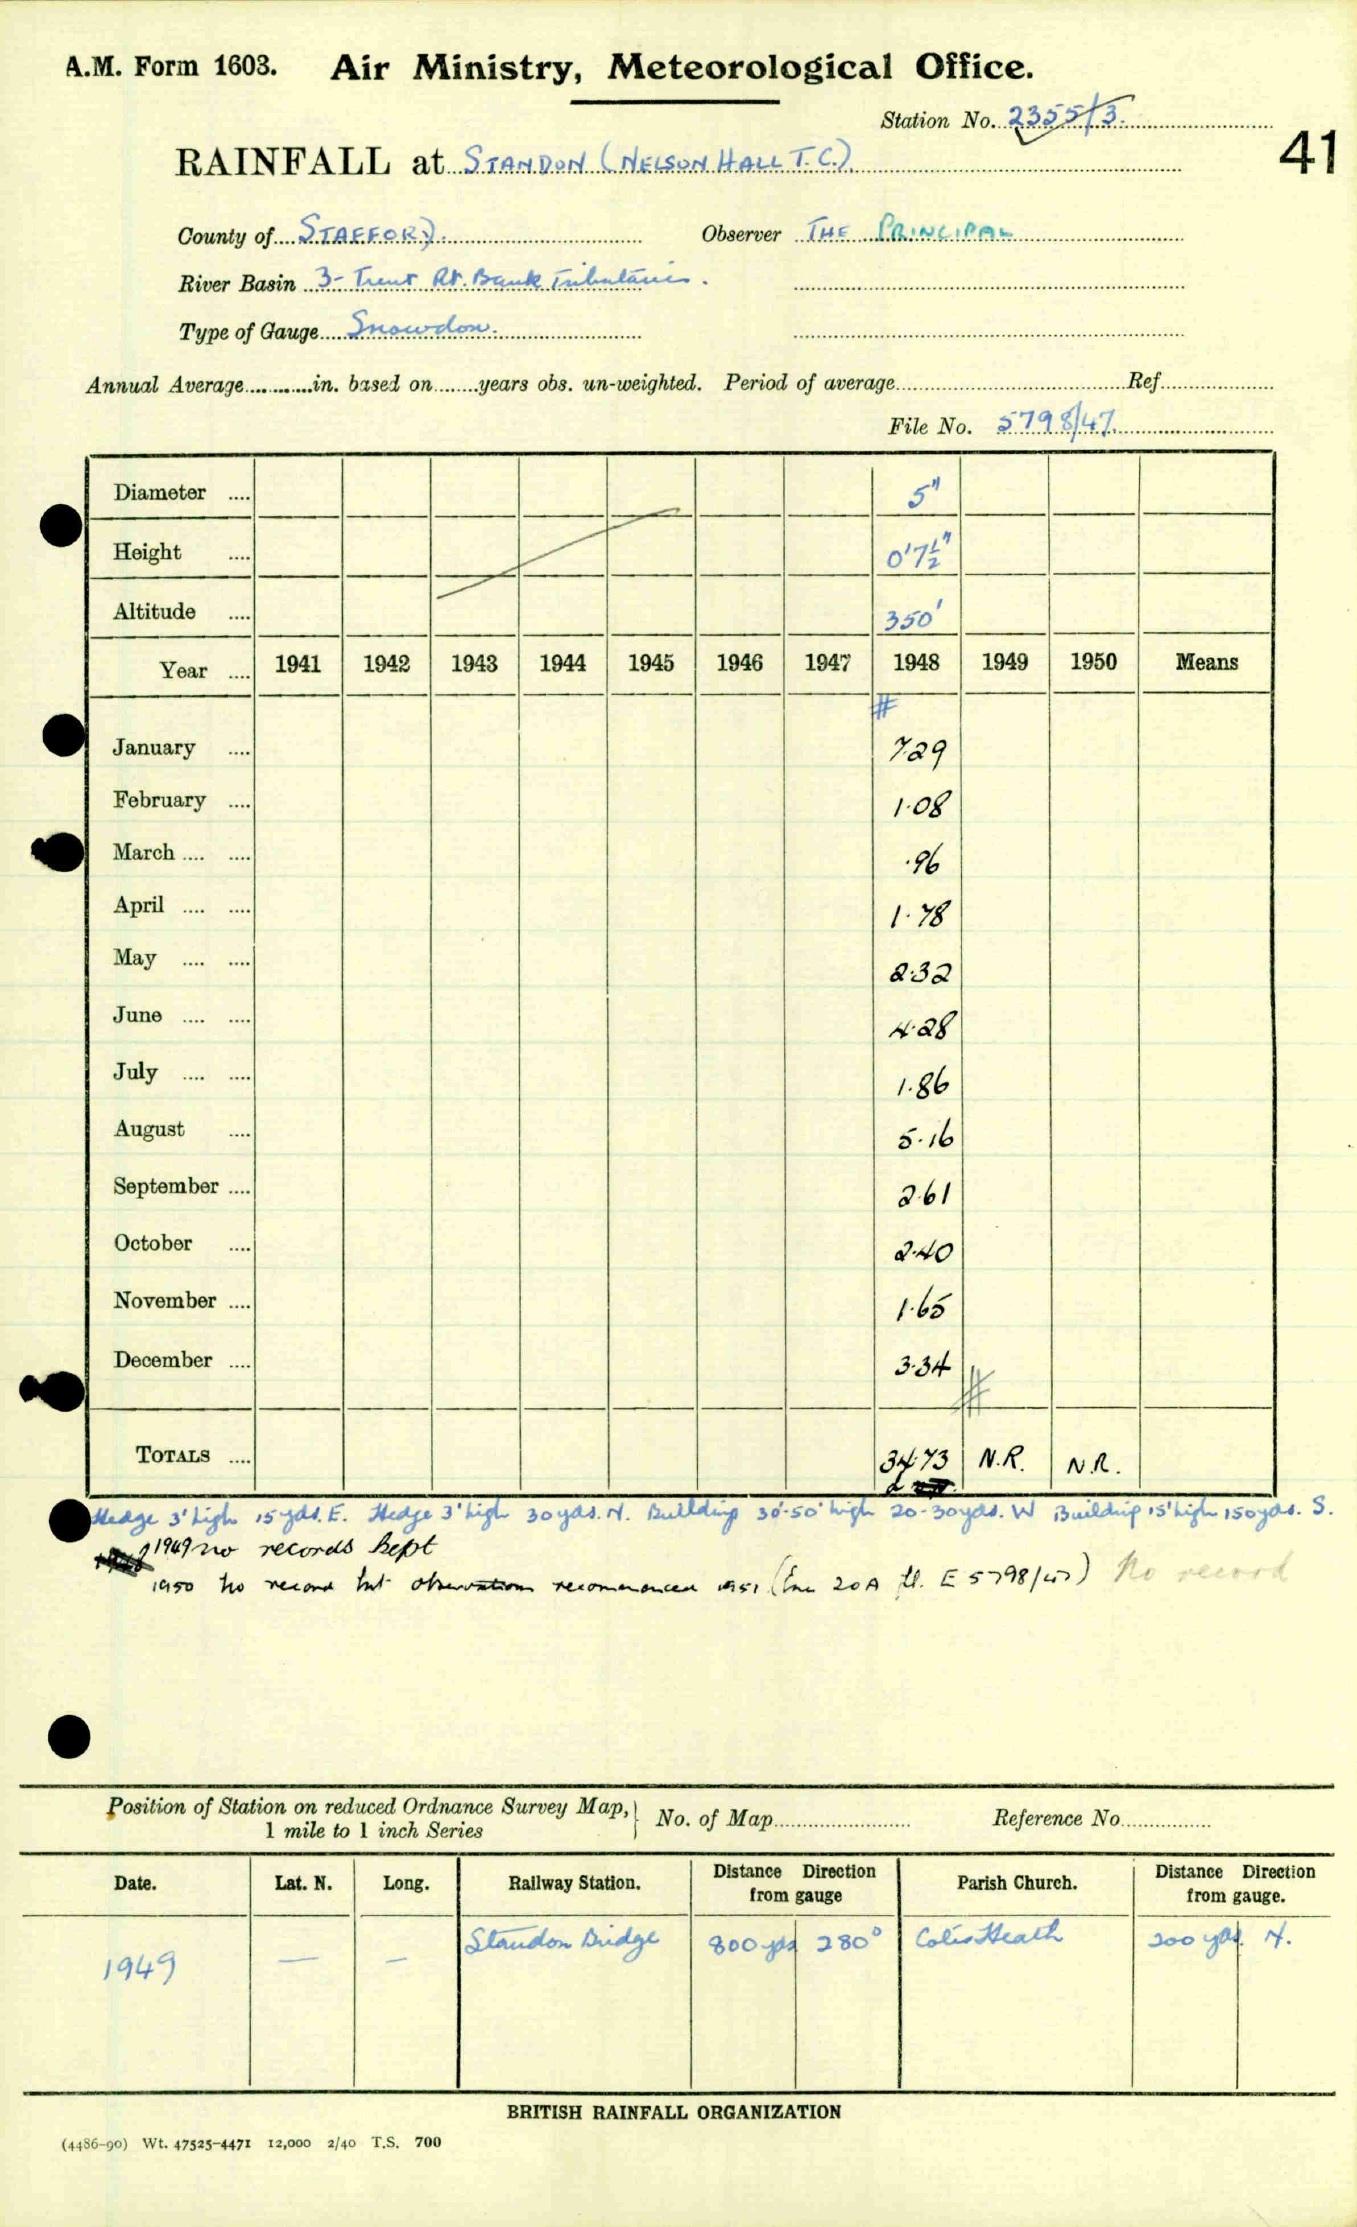 A.M. Form 1603. Air Ministry, Meteorological Office.
Station No. 2355/3.
41
RAINFALL at STANDON (NELSON HALL T.C.).
County of STAFFORD. Observer THE PRINCIPAL
River Basin 3 - Trent Rt. Bank Tributaries.
Type of Gauge Snowdon.
Annual Average............in. based on........years obs. un-weighted. Period of average............Ref............
File No. 5798/47.
Diameter .... 5"
Height .... 0'7½"
Altitude .... 350'
Year .... 1941 1942 1943 1944 1945 1946 1947 1948 1949 1950 Means
#
January .... 7.29
February .... 1.08
March .... .... .96
April .... .... 1.78
May .... .... 2.32
June .... .... 4.28
July .... .... 1.86
August .... 5.16
September .... 2.61
October .... 2.40
November .... 1.65
December .... 3.34
#
TOTALS .... 34.73 N.R. N.R.
Hedge 3' high 15 yds. E. Hedge 3' high 30 yds. N. Building 30'-50' high 20-30 yds. W Building 15' high 150 yds. S.
1949 no records kept
1950 No record but observations recommenced 1951 (Enc 20A E 5798/47) No record
Position of Station on reduced Ordnance Survey Map, } No. of Map............ Reference No............
1 mile to 1 inch Series
Date. Lat. N. Long. Railway Station. Distance from gauge Direction Parish Church. Distance from gauge. Direction
1949 — — Standon Bridge 800 yds 280° Cotes Heath 200 yds. N.
BRITISH RAINFALL ORGANIZATION
(4486-90) Wt. 47525-4471 12,000 2/40 T.S. 700